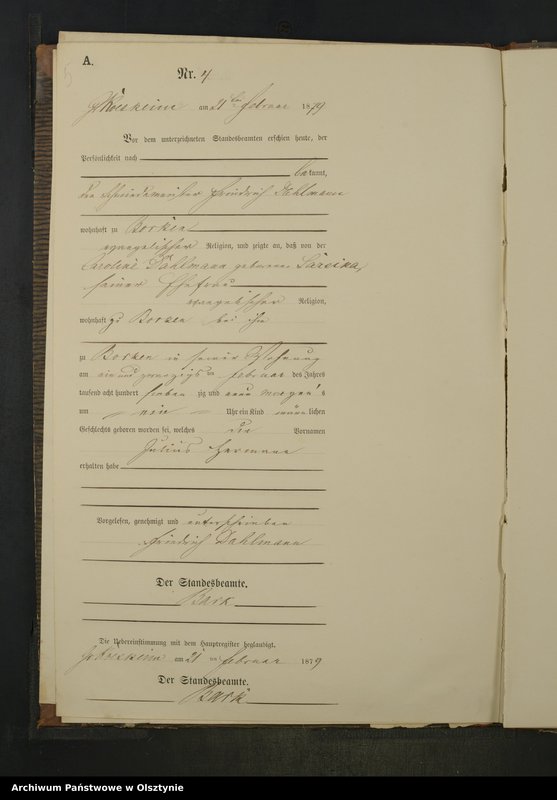 A.
Nr. 4
am 21 ten Februar 1879
Vor dem unterzeichneten Standesbeamten erschien heute, der
Persönlichkeit nach
bekannt,
der Schneidermeister Friedrich Dahlmann
wohnhaft zu Borken
evangelischer Religion, und zeigte an, daß von der
Caroline Dahlmann geborene
seiner Ehefrau
evangelischer Religion,
wohnhaft zu Borken bei ihm
zu Borken in seiner Wohnung
am ein und zwanzigsten Februar des Jahres
tausend acht hundert sieben zig und neun Morgens
um ein Uhr ein Kind männlichen
Geschlechts geboren worden sei, welches die Vornamen
Julius Hermann
erhalten habe
Vorgelesen, genehmigt und unterschrieben
Friedrich Dahlmann
Der Standesbeamte.
Bark
Die Uebereinstimmung mit dem Hauptregister beglaubigt.
am 21 ten Februar 1879
Der Standesbeamte.
Bark
Archiwum Państwowe w Olsztynie